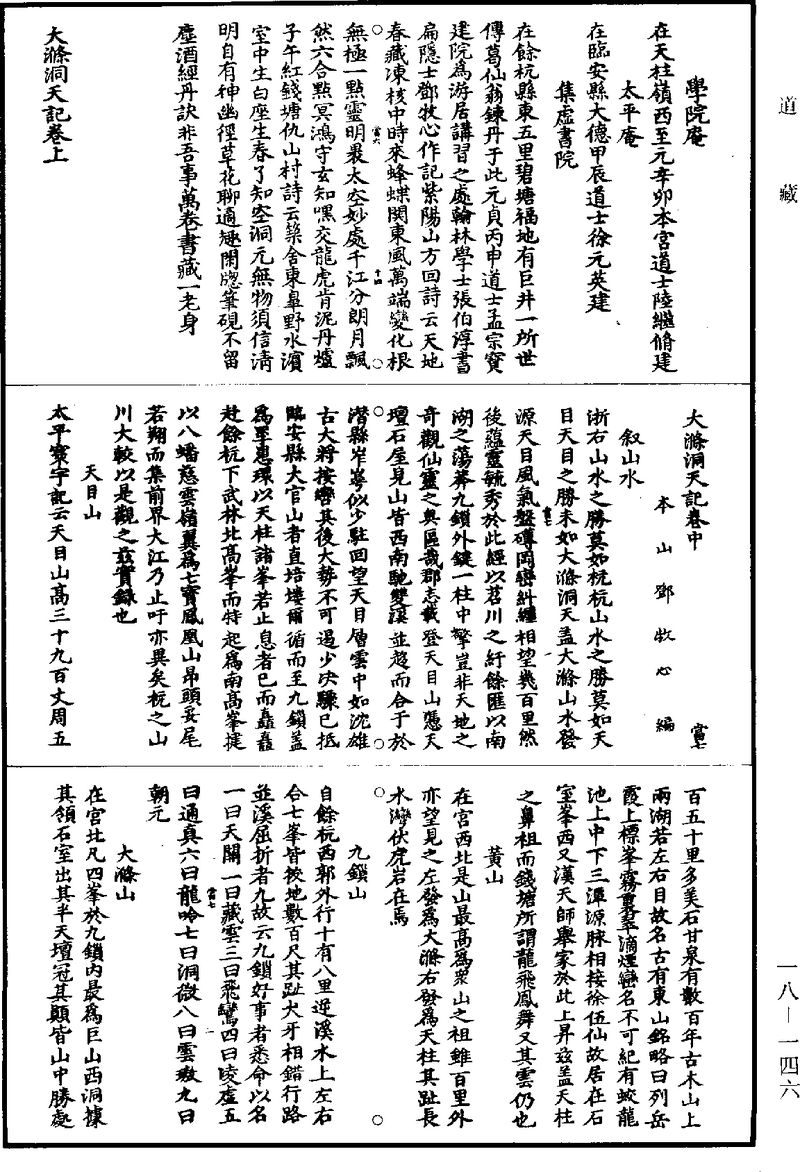 道藏
學院庵
在天柱嶺西至元辛卯本宮道士陸繼脩建
太平庵
在臨安縣大德甲辰道士徐元英建
集虛書院
在餘杭縣東五里碧塘福地有巨井一所世
傳葛仙翁鍊丹于此元貞丙申道士孟宗寶
建院為游居講習之處翰林學士張伯淳書
扁隱士鄧牧心作記紫陽山方回詩云天地
春藏凍核中時來蜂蝶閙東風萬端變化根
無極一點靈明最太空妙處千江分朗月飄
然六合點冥鴻守玄知嘿交龍虎肯泥丹爐
子午紅錢塘仇山村詩云築舍東皐野水濱
室中生白座生春了知空洞元無物須信淸
明自有神幽徑草花聊適趣閑牕筆硯不留
塵酒經丹訣非吾事萬卷書藏一老身
大滌洞天記卷上
大滌洞天記卷中
本山鄧牧心編
叙山水
浙右山水之勝莫如杭杭山水之勝莫如天
目天目之勝未如大滌洞天盖大滌山水發
源天目風氣盤礴岡巒糾纏相望幾百里然
後蘊靈毓秀於此經以苕川之紆餘匯以南
湖之蕩莽九鎖外鍵一柱中擎豈非天地之
奇觀仙靈之奥區哉郡志載登天目山憑天
壇石屋見山皆西南馳雙溪並趍而合于於
潛縣岸崿似少駐回望天目層雲中如沈雄
古大將按轡其後大勢不可遏少决驟已抵
臨安縣大官山者直培塿爾循而至九鎖盖
為單惠環以天柱諸峯若止息者已而矗矗
赴餘杭下武林北高峯而特起為南高峯揵
以八蟠慈雲嶺翼為七寶鳳凰山昂頭妥尾
若翔而集前界大江乃止吁亦異矣杭之山
川大較以是觀之兹實錄也
天目山
太平寰宇記云天目山高三十九百丈周五
百五十里多美石甘泉有數百年古木山上
兩湖若左右目故名古有東山銘略曰列岳
霞上標峯霧裏翠滴煙巒名不可紀有蛟龍
池上中下三潭源脉相接徐伍仙故居在石
室峯西又漢天師舉家於此上昇兹盖天柱
之鼻祖而錢塘所謂龍飛鳳舞又其雲仍也
黃山
在宮西北是山最高為衆山之祖雖百里外
亦望見之左發為大滌右發為天柱其趾長
水灣伏虎岩在焉
九鎖山
自餘杭西郭外行十有八里逆溪水上左右
合七峯皆拔地數百尺其趾犬牙相錯行路
並溪屈折者九故云九鎖好事者悉命以名
一曰天關二曰藏雲三曰飛鸞四曰凌虛五
曰通真六曰龍吟七曰洞微八曰雲璈九曰
朝元
大滌山
在宮北凡四峯於九鎖內最為巨山西洞據
其領石室出其半天壇冠其顛皆山中勝處
一八—一四六